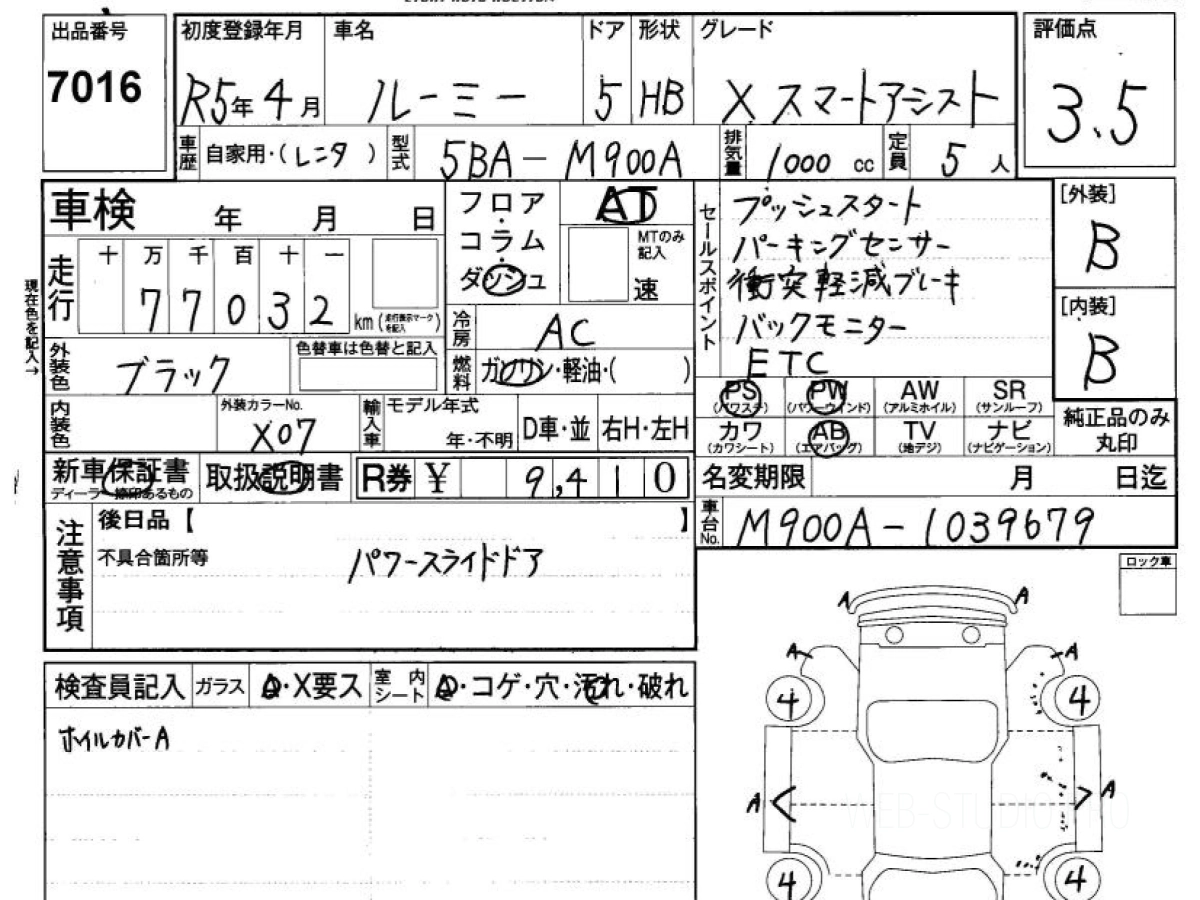 出品番号 初度登録年月 車名 ドア 形状 グレード 評価点
7016 R5年 4月 ルーミー 5 HB X スマートアシスト 3.5
車歴 自家用・(レンタ) 型式 5BA-M900A 排気量 1000 cc 定員 5 人
車検 年 月 日
フロア・コラム・ダッシュ
AT
MTのみ記入
速
セールスポイント
プッシュスタート
パーキングセンサー
衝突軽減ブレーキ
バックモニター
ETC
[外装]
B
[内装]
B
現在色を記入→
走行 十 万 千 百 十 一
77032 km (走行表示マークを記入)
冷房 AC
外装色 ブラック 色替車は色替と記入
燃料 ガソリン・軽油・( )
PS (パワステ) PW (パワーウインド) AW (アルミホイル) SR (サンルーフ)
カワ (カワシート) AB (エアバッグ) TV (地デジ) ナビ (ナビゲーション)
純正品のみ丸印
内装色 外装カラーNo. X07 輸入車 モデル年式 年・不明 D車・並 右H・左H
新車保証書 ディーラー捺印あるもの 取扱説明書 R券 ¥ 9,410
名変期限 月 日迄
車台No. M900A-1039679
注意事項
後日品【 】
不具合箇所等 パワースライドドア
ロック車
検査員記入 ガラス A・X要ス 室内シート A・コゲ・穴・汚れ・破れ
ホイルカバーA
A A
A A
4 4
A A
WEB-STUDIO.PRO
4 4